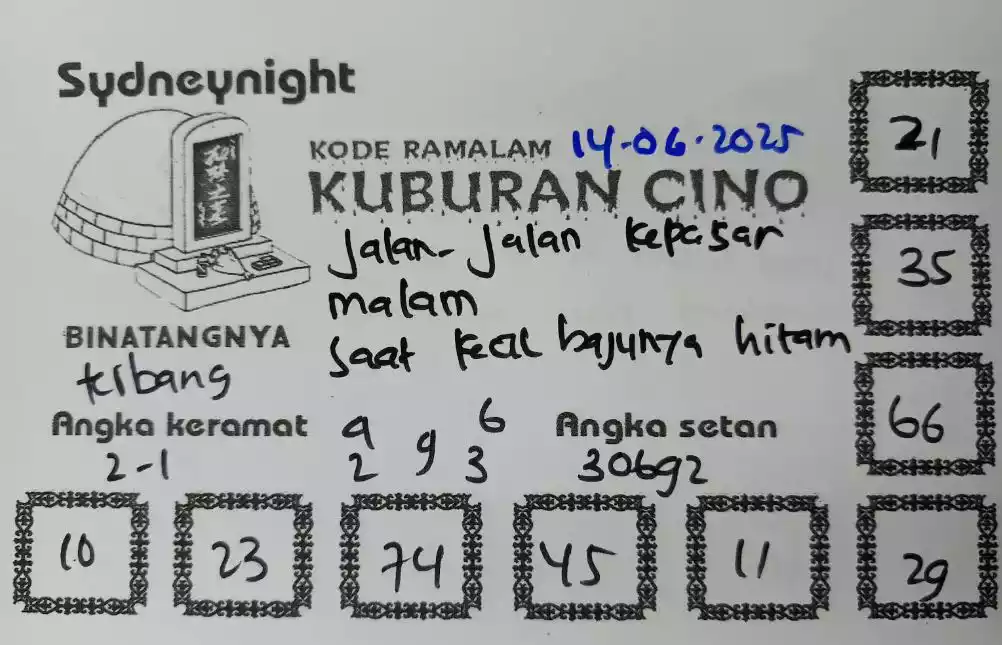 Sydneynight
KODE RAMALAM 14-06-2025
KUBURAN CINO
Jalan-Jalan kepasar
malam
saat kecil bajunya hitam
BINATANGNYA
terbang
Angka keramat
2-1
9 6
2 9 3
Angka setan
30692
21
35
66
10 23 74 45 11 29